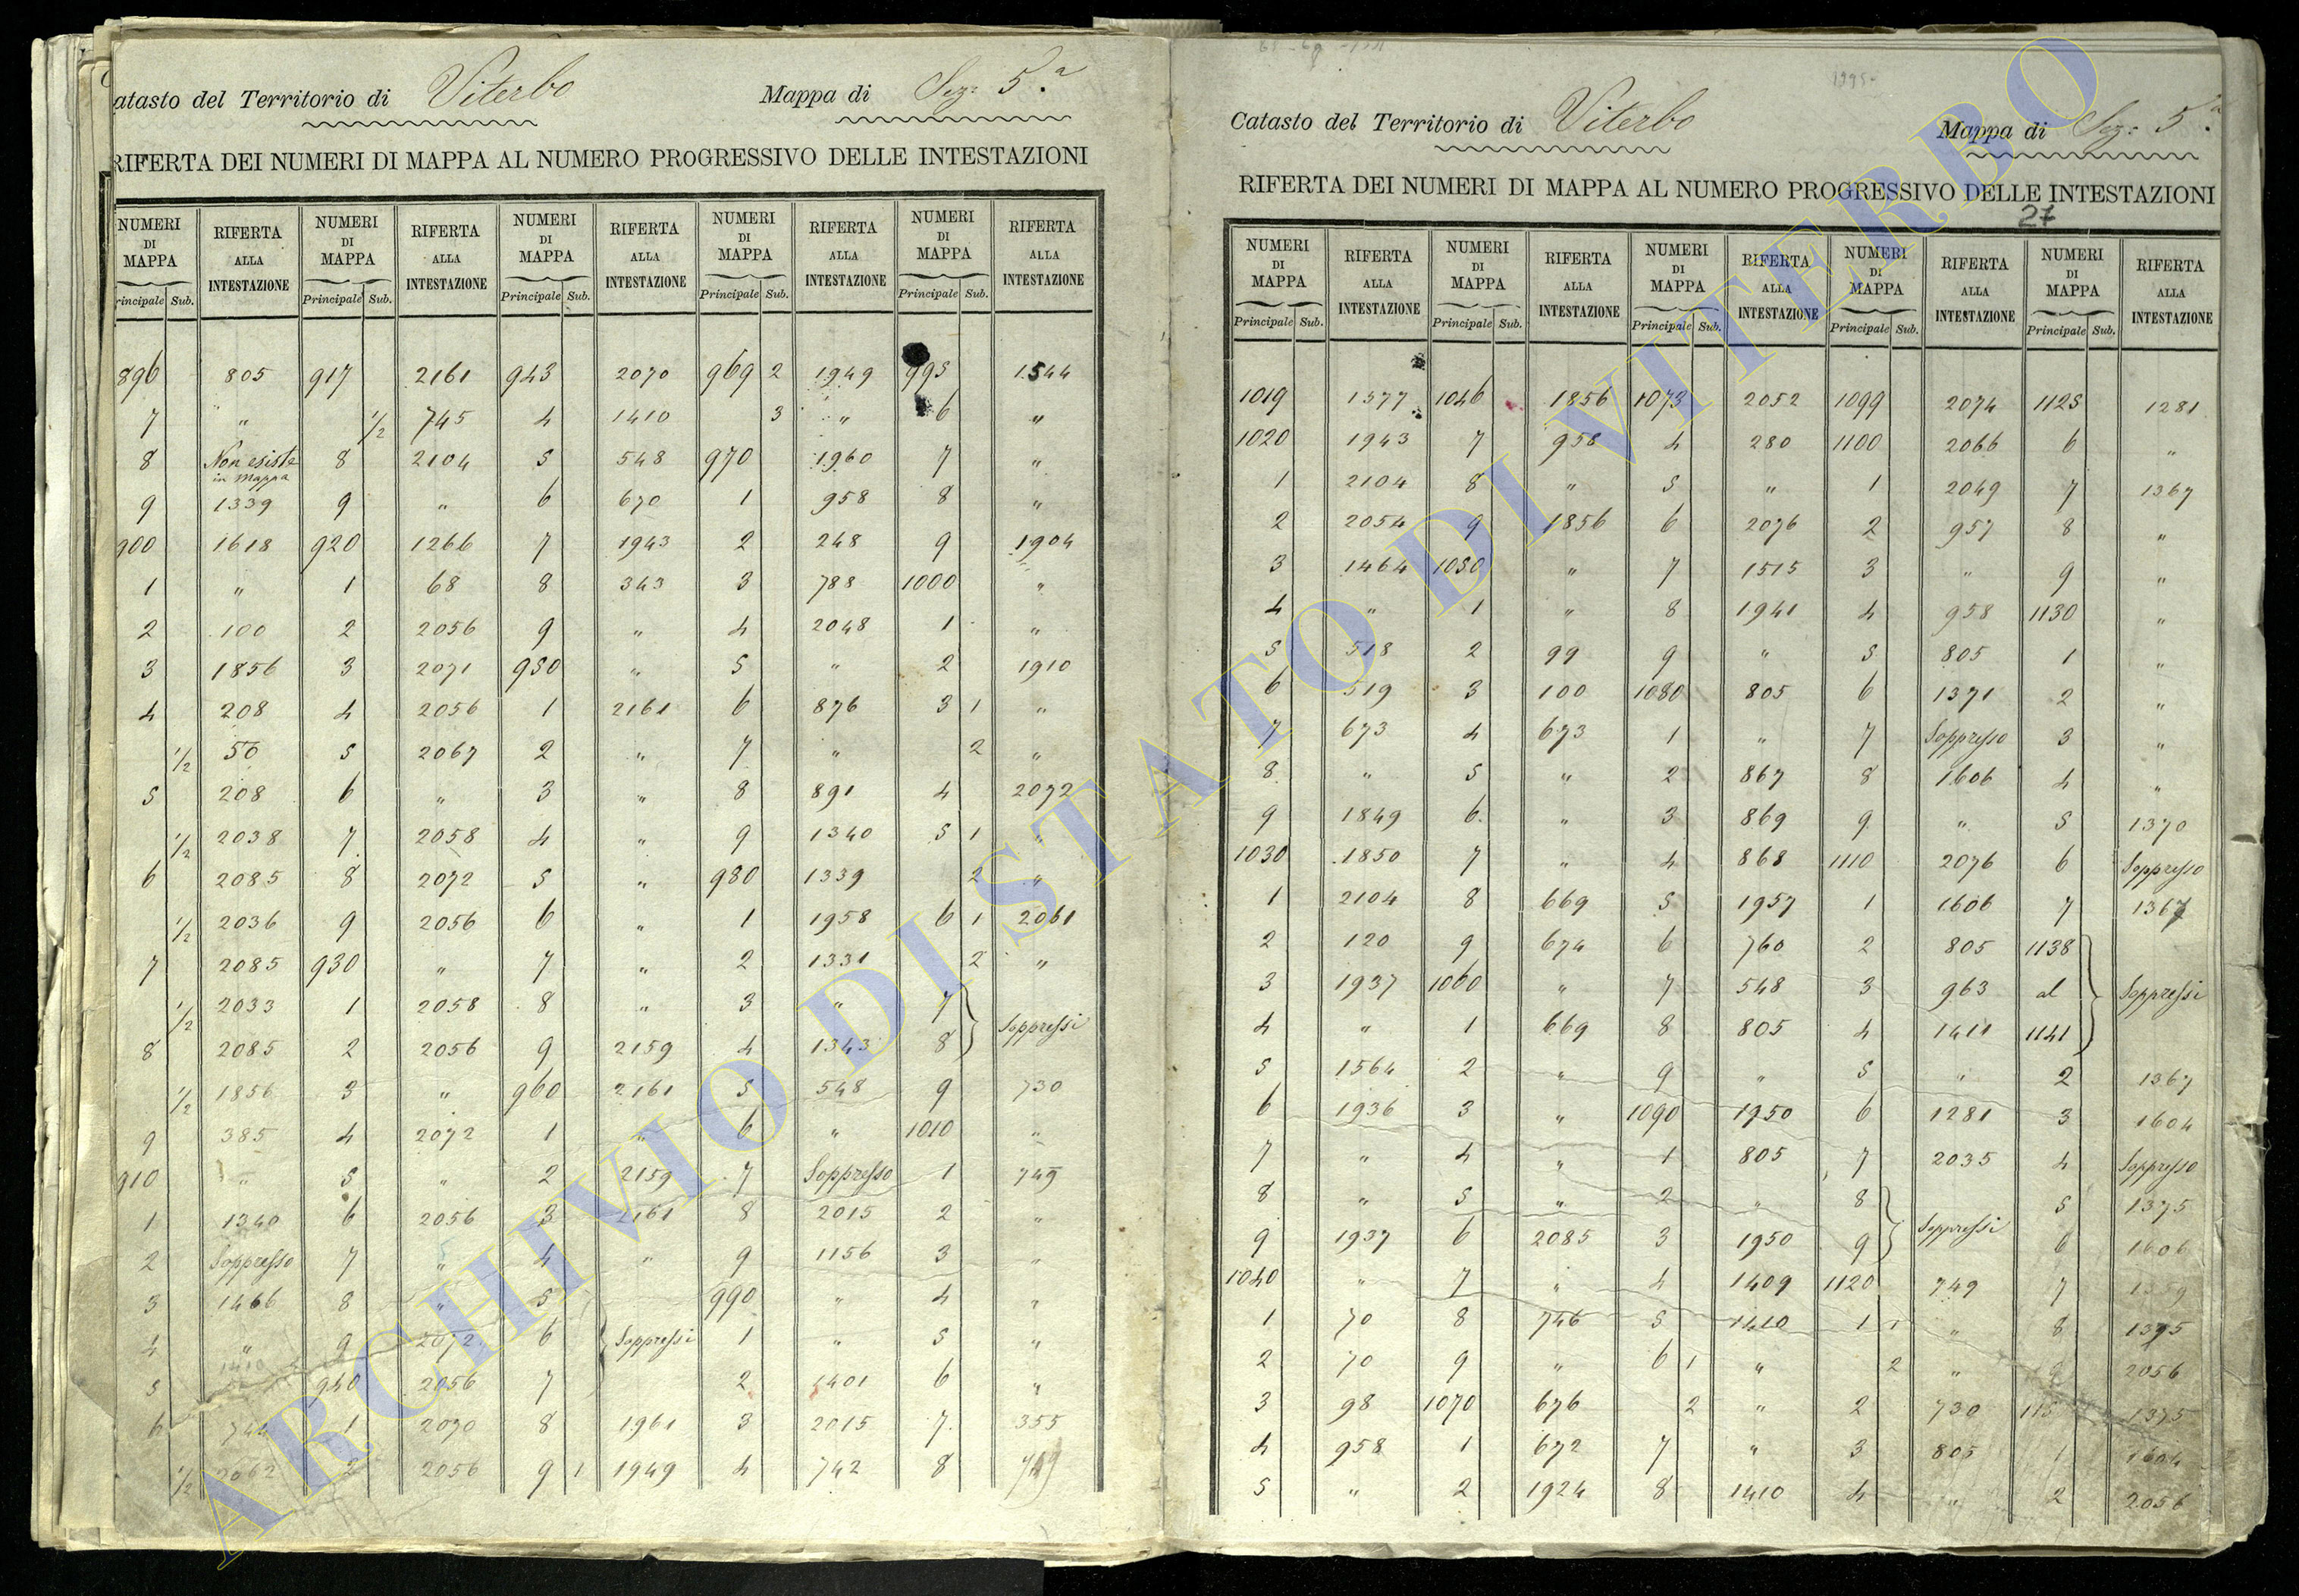 Catasto del Territorio di Viterbo Mappa di Sez: 5.a
RIFERTA DEI NUMERI DI MAPPA AL NUMERO PROGRESSIVO DELLE INTESTAZIONI
NUMERI DI MAPPA RIFERTA ALLA INTESTAZIONE NUMERI DI MAPPA RIFERTA ALLA INTESTAZIONE NUMERI DI MAPPA RIFERTA ALLA INTESTAZIONE NUMERI DI MAPPA RIFERTA ALLA INTESTAZIONE NUMERI DI MAPPA RIFERTA ALLA INTESTAZIONE
Principale Sub. Principale Sub. Principale Sub. Principale Sub. Principale Sub.
896 805 917 2161 943 2070 969 2 1949 995 1544
7 " 1/2 745 4 1410 3 " 6 "
8 Non esiste in Mappa 8 2104 5 548 970 1960 7 "
9 1339 9 " 6 670 1 958 8 "
900 1618 920 1266 7 1943 2 248 9 1904
1 " 1 68 8 343 3 788 1000 "
2 100 2 2056 9 " 4 2048 1 "
3 1856 3 2071 950 " 5 " 2 1910
4 208 4 2056 1 2161 6 876 3 1 "
1/2 50 5 2067 2 " 7 " 2 "
5 208 6 " 3 " 8 891 4 2072
1/2 2038 7 2058 4 " 9 1340 5 1 "
6 2085 8 2072 5 " 980 1339 2 "
1/2 2036 9 2056 6 " 1 1958 6 1 2061
7 2085 930 " 7 " 2 1331 2 "
1/2 2033 1 2058 8 " 3 " 7 Soppressi
8 2085 2 2056 9 2159 4 1343 8
1/2 1856 3 " 960 2161 5 548 9 730
9 385 4 2072 1 " 6 " 1010 "
910 " 5 " 2 2159 7 Soppresso 1 749
1 1340 6 2056 3 2161 8 2015 2 "
2 Soppresso 7 " 4 " 9 1156 3 "
3 1466 8 " 5 990 " 4 "
4 " 9 2072 6 Soppressi 1 " 5 "
5 1410 940 2056 7 2 1401 6 "
6 1 2070 8 1961 3 2015 7 355
1/2 2062 2 2056 9 1 1949 4 742 8
Catasto del Territorio di Viterbo Mappa di Sez: 5.a
RIFERTA DEI NUMERI DI MAPPA AL NUMERO PROGRESSIVO DELLE INTESTAZIONI
27
NUMERI DI MAPPA RIFERTA ALLA INTESTAZIONE NUMERI DI MAPPA RIFERTA ALLA INTESTAZIONE NUMERI DI MAPPA RIFERTA ALLA INTESTAZIONE NUMERI DI MAPPA RIFERTA ALLA INTESTAZIONE NUMERI DI MAPPA RIFERTA ALLA INTESTAZIONE
Principale Sub. Principale Sub. Principale Sub. Principale Sub. Principale Sub.
1019 1577 1046 1856 1073 2052 1099 2074 1125 1281
1020 1943 7 958 4 280 1100 2066 6 "
1 2104 8 " 5 " 1 2049 7 1367
2 2054 9 1856 6 2076 2 957 8 "
3 1464 1050 " 7 1515 3 " 9 "
4 " 1 " 8 1941 4 958 1130 "
5 518 2 99 9 " 5 805 1 "
6 519 3 100 1080 805 6 1371 2 "
7 673 4 673 1 " 7 Soppresso 3 "
8 " 5 " 2 867 8 1606 4 "
9 1849 6 " 3 869 9 " 5 1370
1030 1850 7 " 4 868 1110 2076 6 Soppresso
1 2104 8 669 5 1957 1 1606 7 1367
2 120 9 674 6 760 2 805 1138
3 1937 1060 " 7 548 3 963 al Soppressi
4 " 1 669 8 805 4 1411 1141
5 1564 2 " 9 " 5 " 2 1367
6 1936 3 " 1090 1950 6 1281 3 1604
7 " 4 " 1 805 7 2035 4 Soppresso
8 " 5 " 2 " 8 Soppressi 5 1375
9 1937 6 2085 3 1950 9 6 1606
1040 " 7 " 4 1409 1120 749 7 1359
1 70 8 746 5 1410 1 1 " 8 1375
2 70 9 " 6 1 " 2 " 9 2056
3 98 1070 676 2 " 2 730 115 1375
4 958 1 672 7 " 3 805 1 1604
5 " 2 1924 8 1410 4 " 2 2056
ARCHIVIO DI STATO DI VITERBO